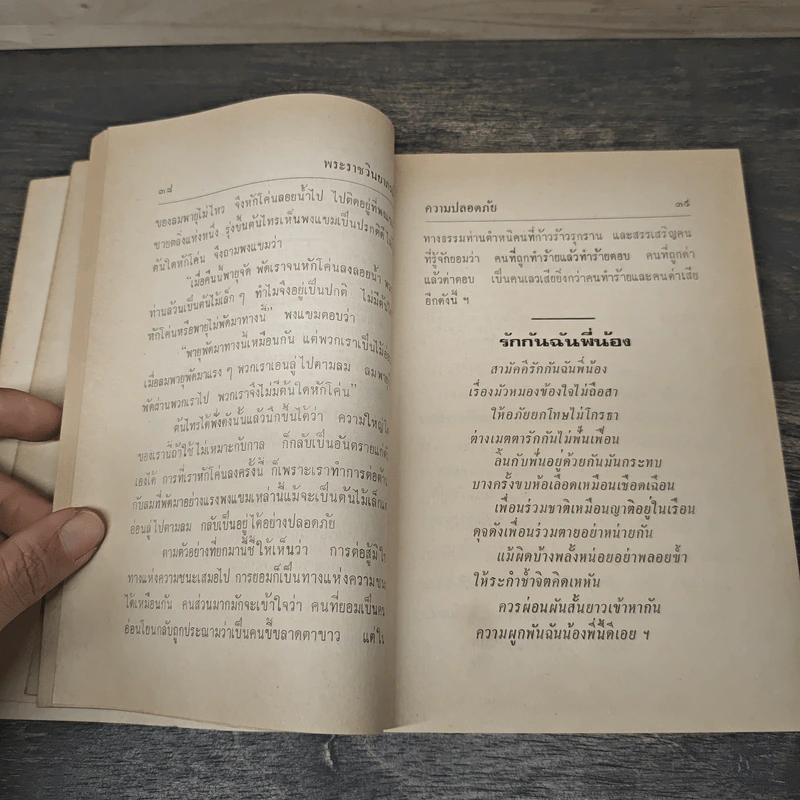 ๓๘ พระราชวินยาภรณ์
ของลมพายุไม่ไหว จึงหักโค่นลอยน้ำไป ไปติดอยู่ที่พง
ชายตลิ่งแห่งหนึ่ง รุ่งขึ้นต้นไทรเห็นพงแขมเป็นปรกติดี
ต้นใดหักโค่น จึงถามพงแขมว่า
"เมื่อคืนนี้พายุจัด พัดเราจนหักโค่นลงลอยน้ำ
ท่านล้วนเป็นต้นไม้เล็กๆ ทำไมจึงอยู่เป็นปกติ ไม่มี
หักโค่นหรือพายุไม่พัดมาทางนี้" พงแขมตอบว่า
"พายุพัดมาทางนี้เหมือนกัน แต่พวกเราเป็นไม้
เมื่อลมพายุพัดมาแรงๆ พวกเราเอนลู่ไปตามลม ลมพายุ
พัดผ่านพวกเราไป พวกเราจึงไม่มีต้นใดหักโค่น"
ต้นไทรได้ฟังดังนั้นแล้วนึกขึ้นได้ว่า ความใหญ่
ของเรานี้ถ้าใช้ไม่เหมาะกับกาล ก็กลับเป็นอันตรายแก่
เองได้ การที่เราหักโค่นลงครั้งนี้ ก็เพราะเราทำการต่อต้าน
กับลมที่พัดมาอย่างแรงพงแขมเหล่านี้แม้จะเป็นต้นไม้เล็ก
อ่อนลู่ไปตามลม กลับเป็นอยู่ได้อย่างปลอดภัย
ตามตัวอย่างที่ยกมานี้ชี้ให้เห็นว่า การต่อสู้มิ
ทางแห่งความชนะเสมอไป การยอมก็เป็นทางแห่งความชนะ
ได้เหมือนกัน คนส่วนมากมักจะเข้าใจว่า คนที่ยอมเป็นคน
อ่อนโยนกลับถูกประณามว่าเป็นคนขี้ขลาดตาขาว แต่
ความปลอดภัย ๓๙
ทางธรรมท่านตำหนิคนที่ก้าวร้าวรุกราน และสรรเสริญคน
ที่รู้จักยอมว่า คนที่ถูกทำร้ายแล้วทำร้ายตอบ คนที่ถูกด่า
แล้วด่าตอบ เป็นคนเลวเสียยิ่งกว่าคนทำร้ายและคนด่าเสีย
อีกดังนี้ ฯ
รักกันฉันพี่น้อง
สามัคคีรักกันฉันพี่น้อง
เรื่องมัวหมองข้องใจไม่ถือสา
ให้อภัยยกโทษไม่โกรธา
ต่างเมตตารักกันไม่ฟั่นเฟือน
ลิ้นกับฟันอยู่ด้วยกันมันกระทบ
บางครั้งขบห้อเลือดเหมือนเชือดเฉือน
เพื่อนร่วมชาติเหมือนญาติอยู่ในเรือน
ดุจดังเพื่อนร่วมตายอย่าหน่ายกัน
แม้ผิดบ้างพลั้งหน่อยอย่าพลอยซ้ำ
ให้ระกำช้ำจิตคิดเหหัน
ควรผ่อนผันสั้นยาวเข้าหากัน
ความผูกพันฉันน้องพี่นี้ดีเอย ฯ